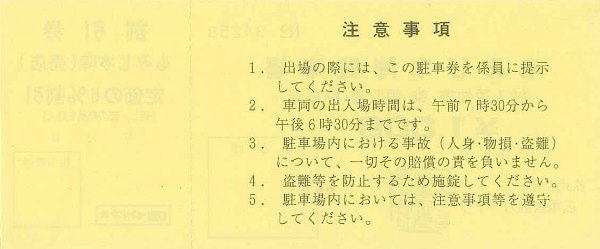 注意事項
1. 出場の際には、この駐車券を係員に提示
してください。
2. 車両の出入場時間は、午前7時30分から
午後6時30分までです。
3. 駐車場内における事故（人身･物損･盗難）
について、一切その賠償の責を負いません。
4. 盗難等を防止するため施錠してください。
5. 駐車場内においては、注意事項等を遵守
してください。